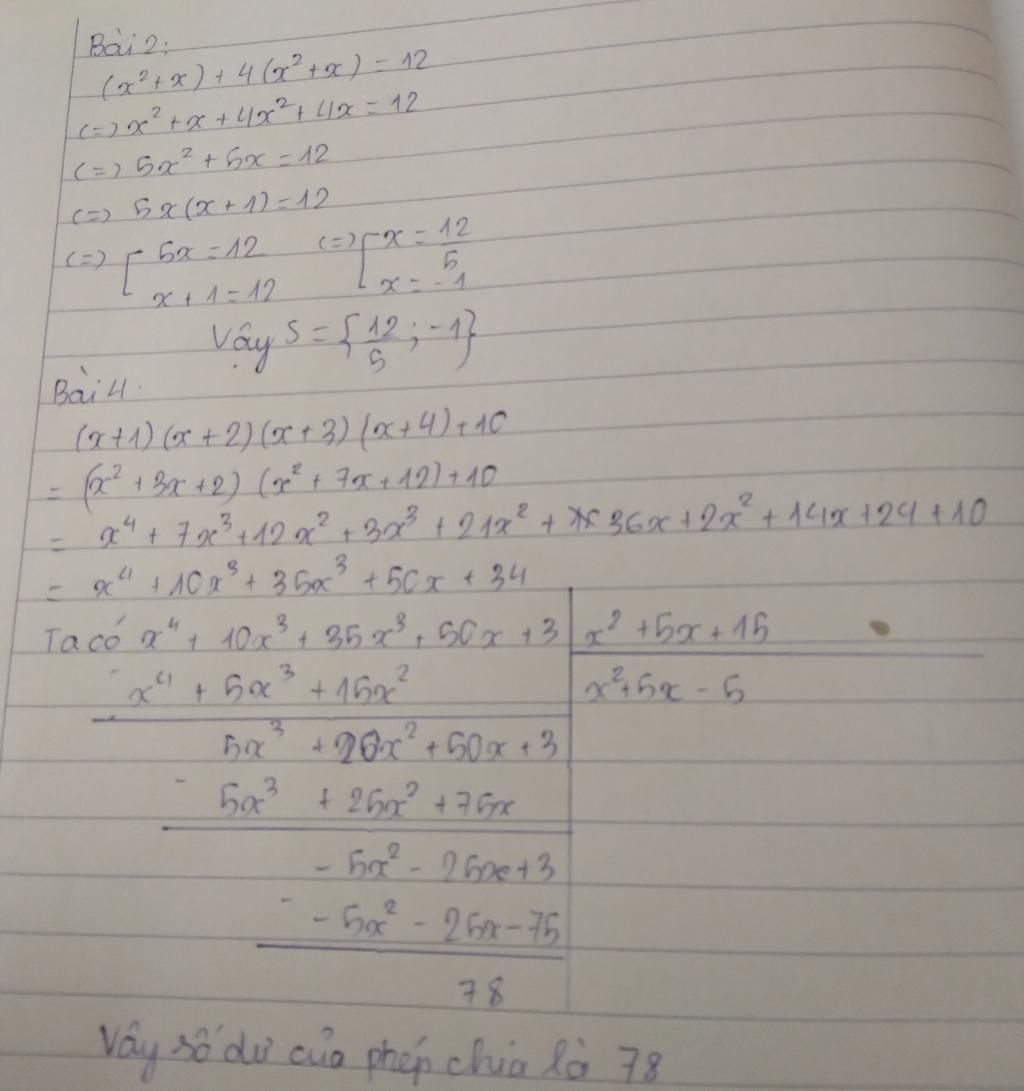 Bài 2:
(x²+x)+4(x²+x)=12
(=) x²+x+4x²+4x=12
(=) 5x²+5x=12
(=) 5x(x+1)=12
(=) [ 5x=12 (=) [ x=12/5
x+1=12 x=-1
Vậy S={12/5;-1}
Bài 4:
(x+1)(x+2)(x+3)(x+4)+10
= (x²+3x+2)(x²+7x+12)+10
= x⁴+7x³+12x²+3x³+21x²+36x+2x²+14x+24+10
= x⁴+10x³+35x³+50x+34
Ta có x⁴+10x³+35x³+50x+3 | x²+5x+15
- x⁴+5x³+15x² | x²+5x-5
5x³+20x²+50x+3
- 5x³+25x²+75x
-5x²-25x+3
- -5x²-25x-75
78
Vậy số dư của phép chia là 78